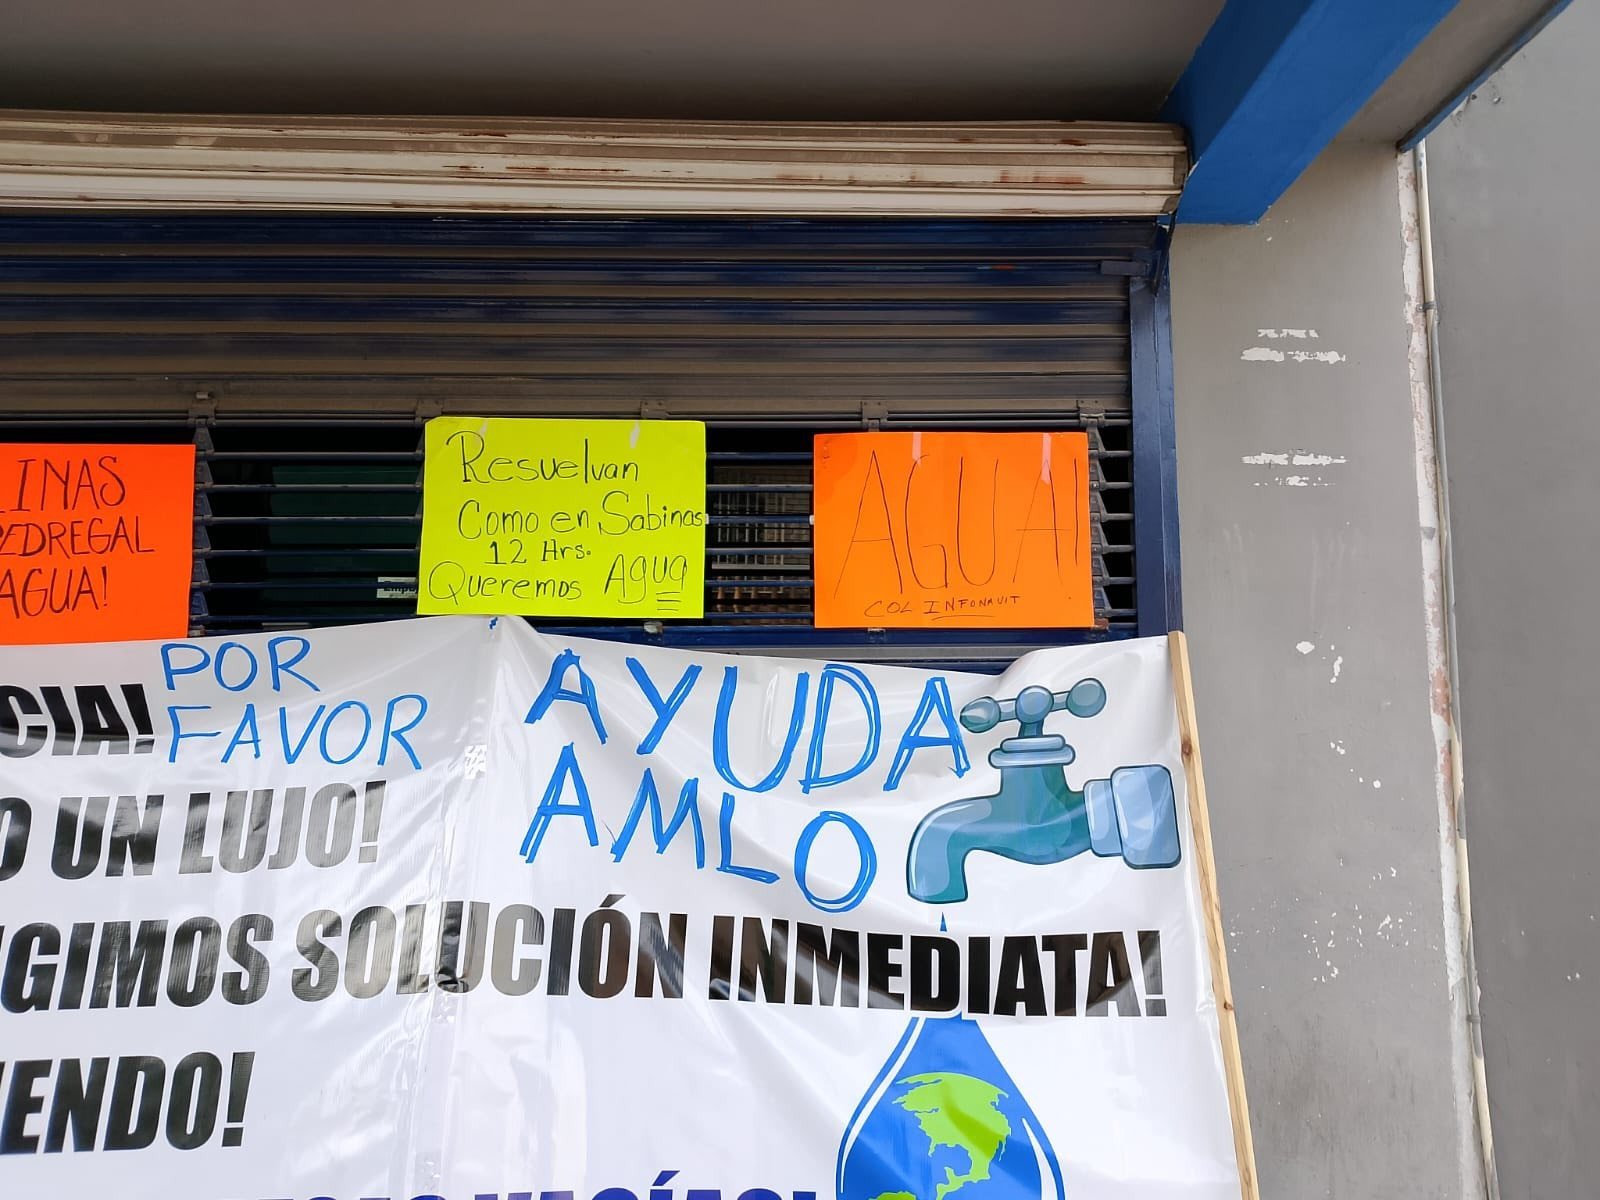 INAS
PEDREGAL
AGUA!
Resuelvan
Como en Sabinas
12 Hrs.
Queremos Agua
AGUA!
COL INFONAVIT
CIA! POR FAVOR
AYUDA
AMLO
O UN LUJO!
GIMOS SOLUCIÓN INMEDIATA!
ENDO!